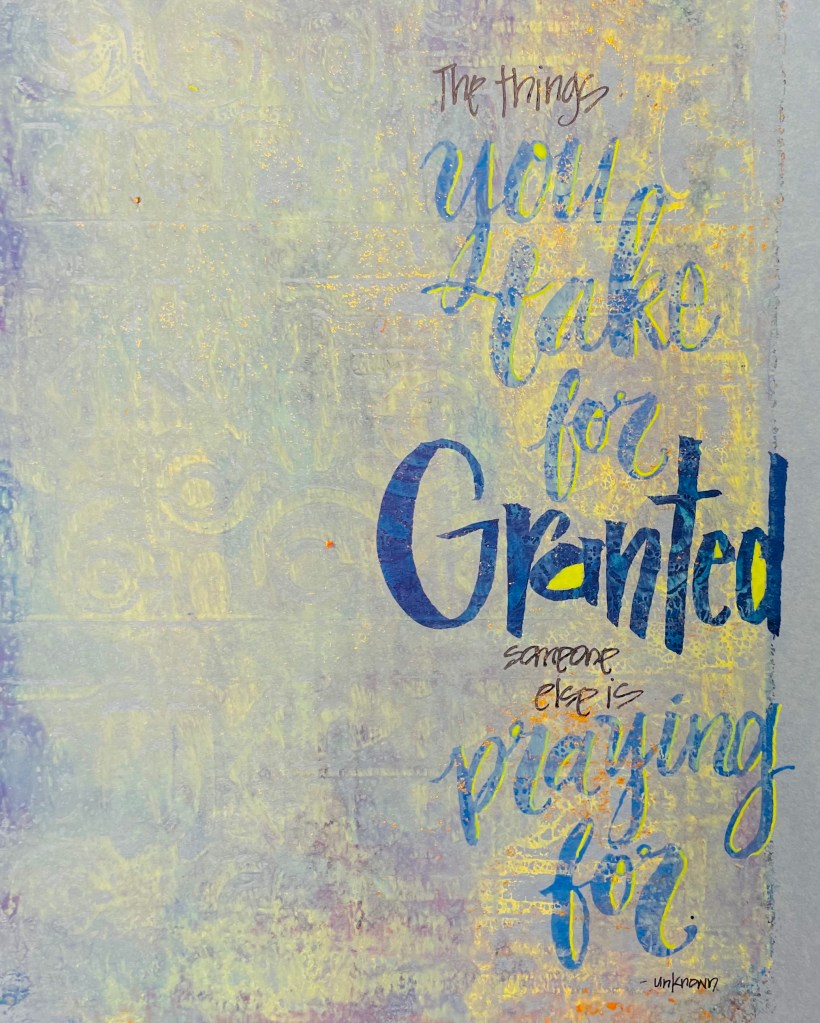 The things
you
take
for
Granted
someone
else is
praying
for.
- unknown